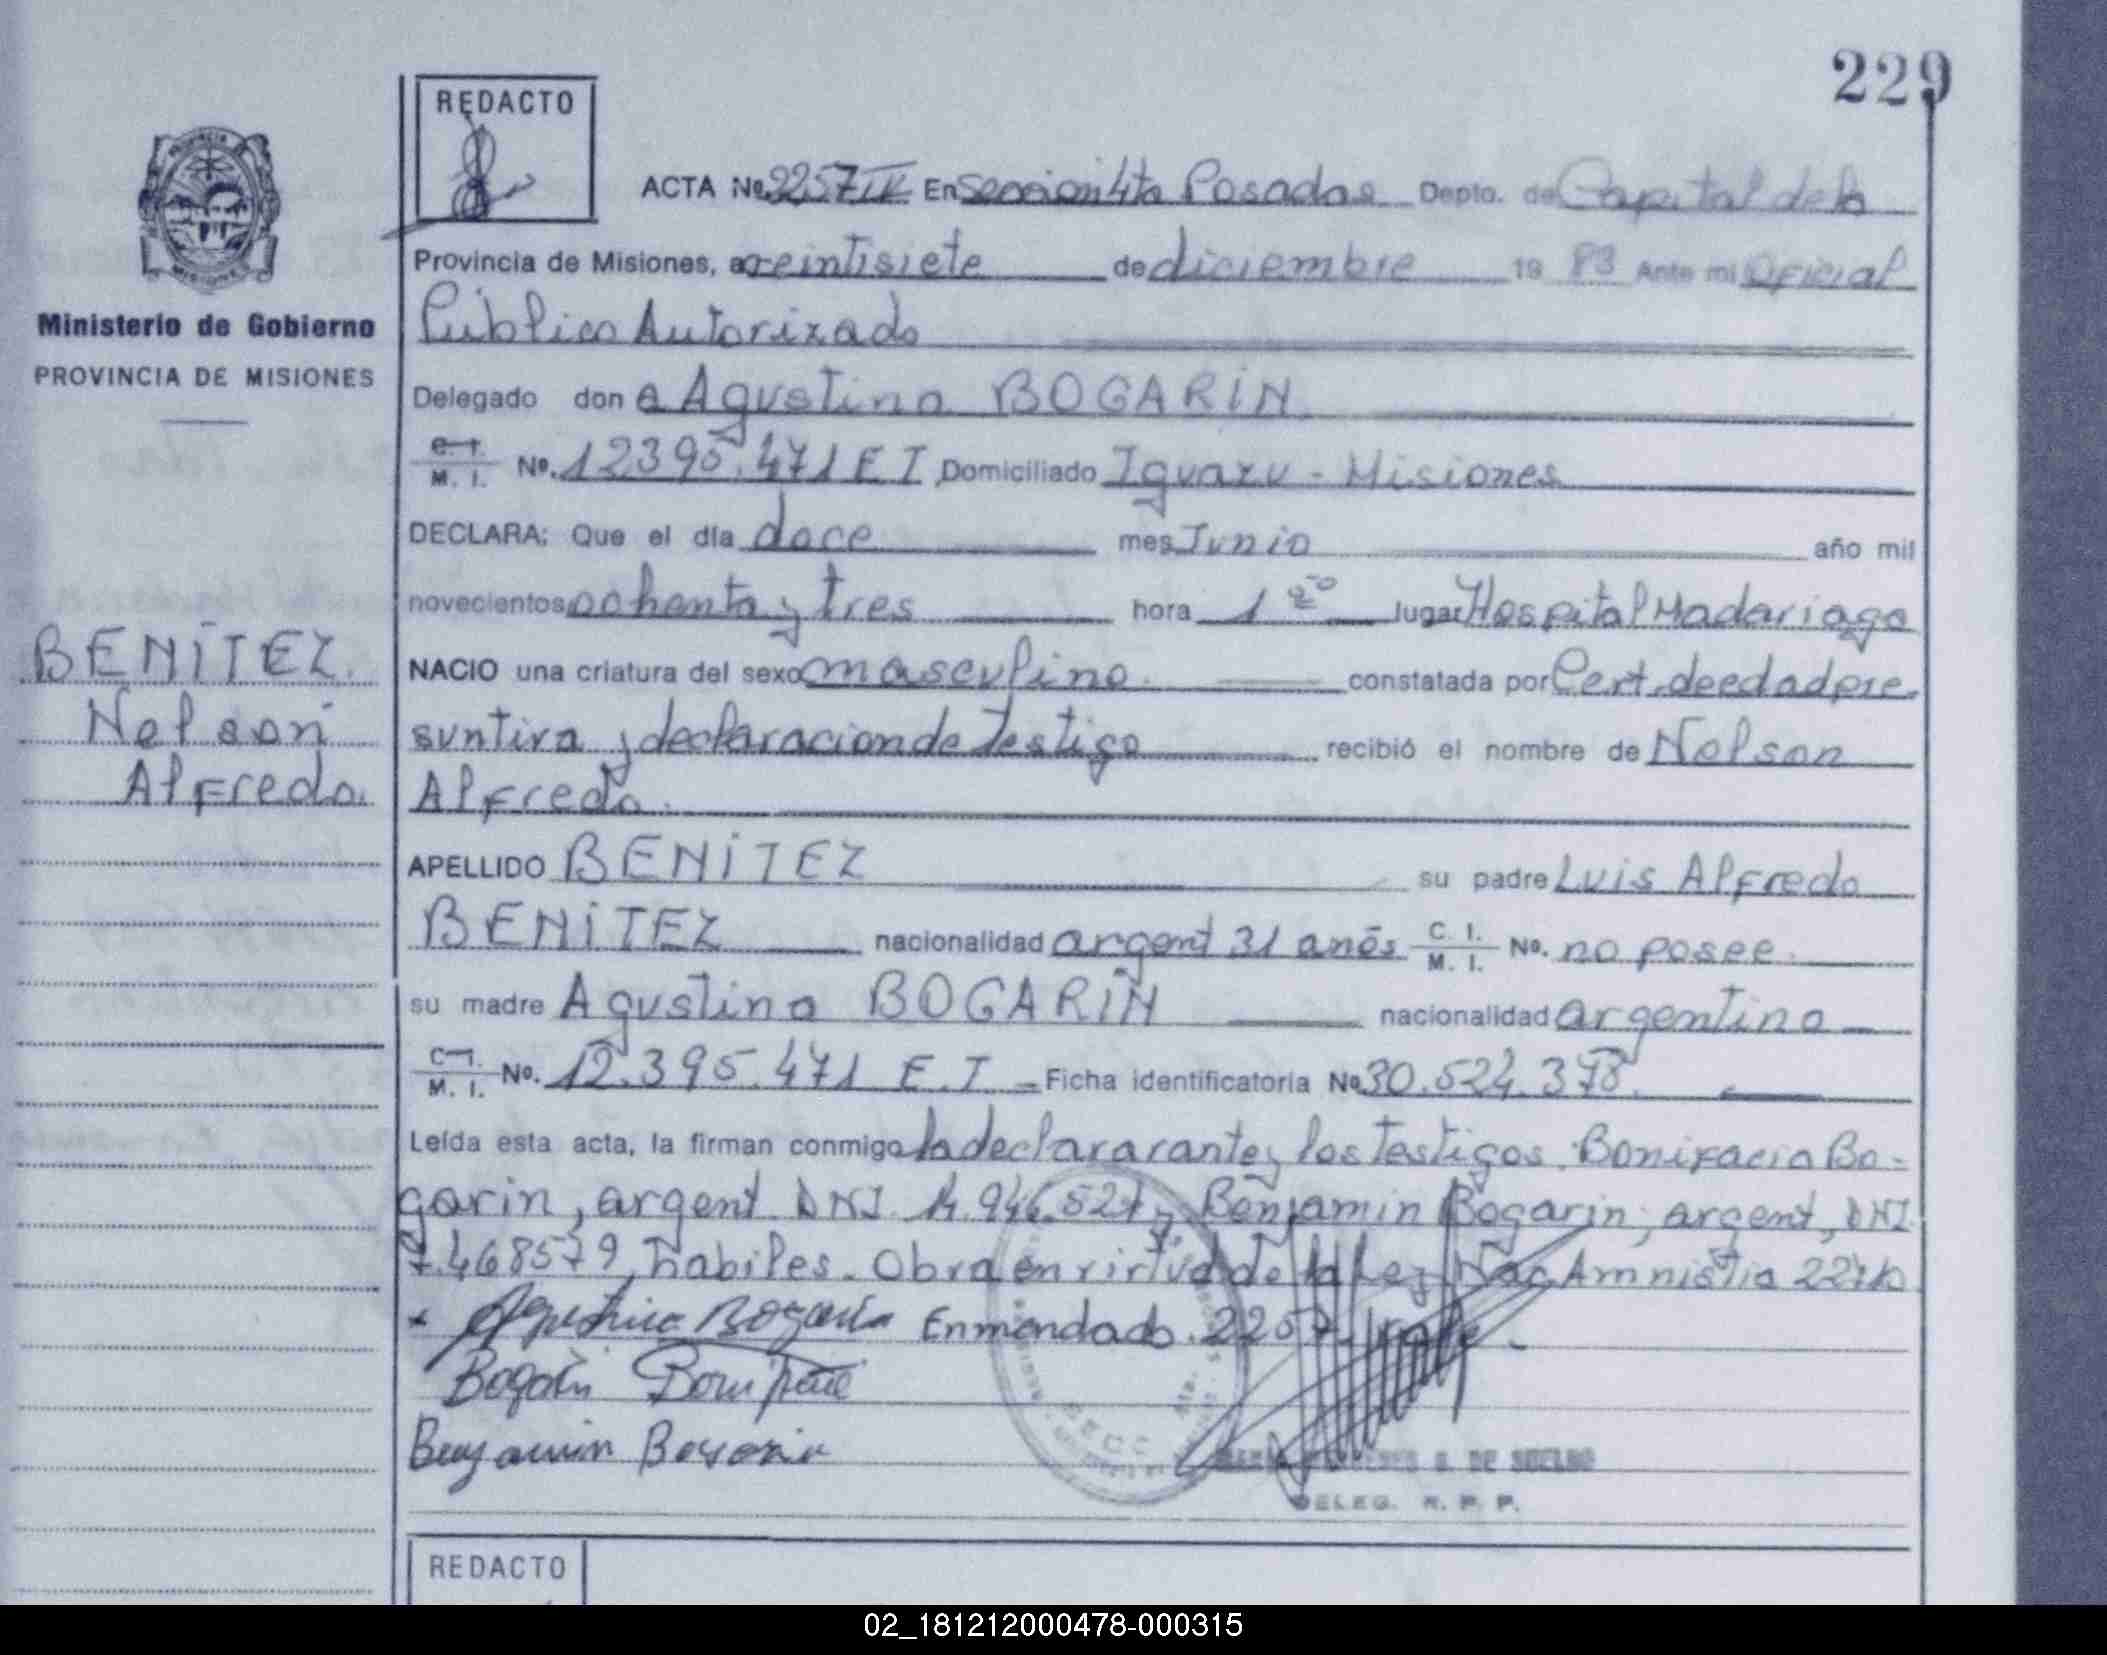 229
REDACTO
ACTA No. 2257 IV En Seccion 4ta Posadas Depto. de Capital de la
Provincia de Misiones, a veintisiete de diciembre 19 83 Ante mi Oficial
Público Autorizado
Delegado don a Agustina BOGARIN
C. I. M. I. No. 12395.471 E I Domiciliado Iguazu - Misiones
DECLARA: Que el día doce mes Junio año mil
novecientos ochenta y tres hora 1 20 lugar Hospital Madariaga
NACIO una criatura del sexo masculino constatada por Cert. de edad pre
suntiva y declaracion de testigo recibió el nombre de Nelson
Alfredo.
APELLIDO BENITEZ su padre Luis Alfredo
BENITEZ nacionalidad argent 31 anõs C. I. M. I. No. no posee.
su madre Agustina BOGARIN nacionalidad argentina
C. I. M. I. No. 12.395.471 E. I Ficha identificatoria No 30.524.378.
Leída esta acta, la firman conmigo la declararante y los testigos. Bonifacio Bo-
garin, argent. DNI. 946.527 y Benjamin Bogarin, argent, DNI
7.468579, habiles. Obra en virtud de la Ley Nac Amnistia
Agustina Bogarin Enmendado. 2257. Vale.
Bogarin Bonifacio
Benjamin Bogarin
SECC
DE SUELDO
DELEG. R. P. P.
Ministerio de Gobierno
PROVINCIA DE MISIONES
BENITEZ.
Nelson
Alfredo.
REDACTO
02_181212000478-000315